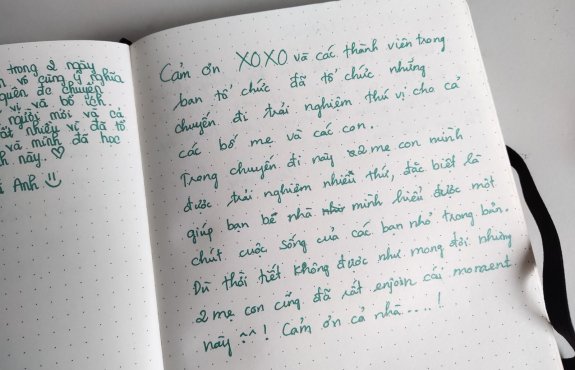 trong 2 ngày
vô cùng ý nghĩa
chuyến
vị và bổ ích.
người mới và cả
rất nhiều vì đã tổ
và mình đã học
này. ♡
Anh
Cảm ơn XOXO và các thành viên trong
ban tổ chức đã tổ chức những
chuyến đi trải nghiệm thú vị cho cả
các bố mẹ và các con.
Trong chuyến đi này 2 mẹ con mình
được trải nghiệm nhiều thứ, đặc biệt là
giúp bạn bé nhà mình hiểu được một
chút cuộc sống của các bạn nhỏ trong bản.
Dù thời tiết không được như mong đợi nhưng
2 mẹ con cũng đã rất enjoin cái moment
này ^^! Cảm ơn cả nhà....!